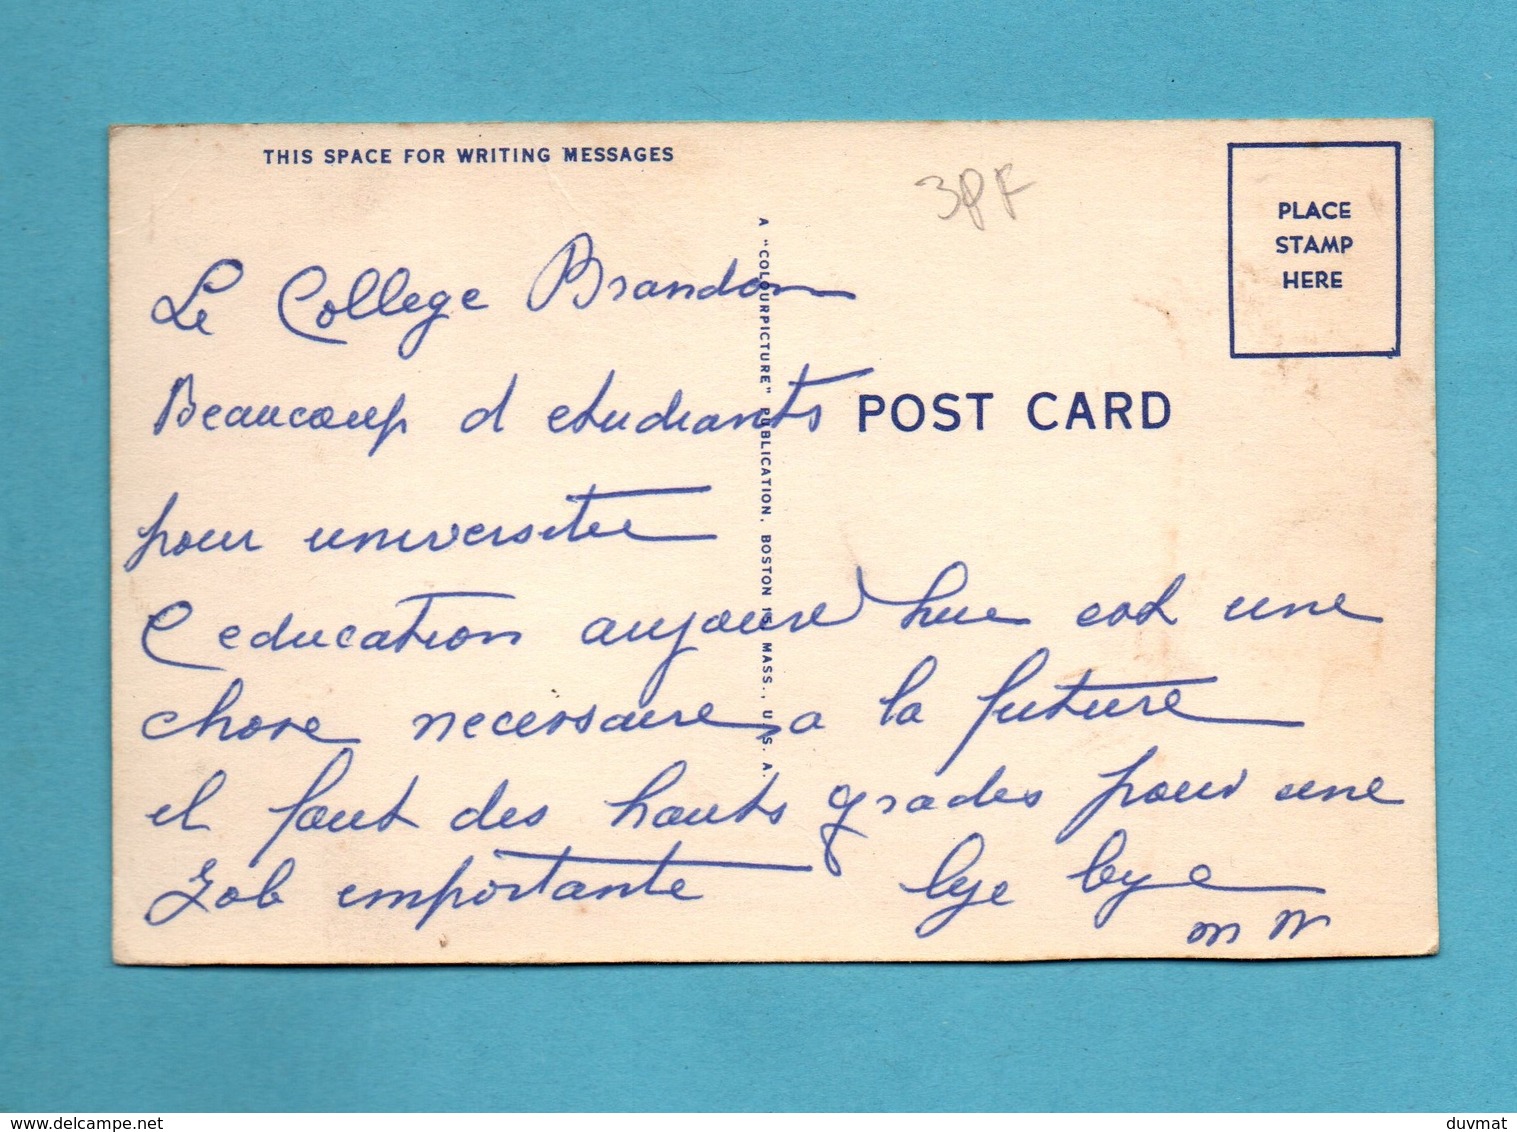 THIS SPACE FOR WRITING MESSAGES
3PF
PLACE
STAMP
HERE
A "COLOURPICTURE" PUBLICATION, BOSTON 15, MASS., U.S.A.
POST CARD
Le College Brandon
Beaucoup d etudiants
pour universitee
l education aujourd hue est une
chose necessaire a la future
il faut des hauts grades pour une
Job importante bye bye
m W
delcampe.net
duvmat